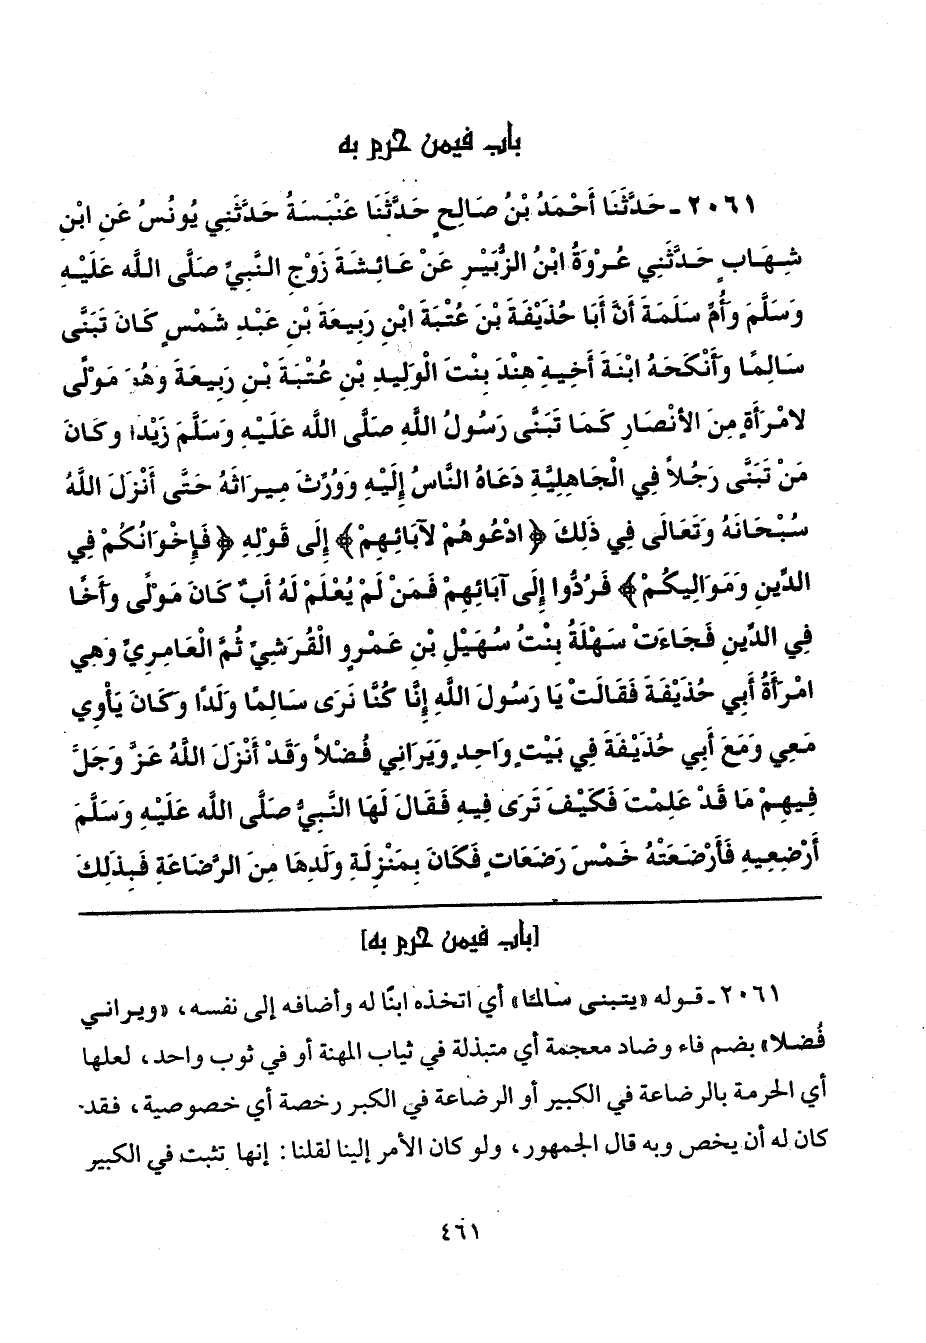 باب فيمن حرم به
٢٠٦١ - حَدَّثَنَا أَحْمَدُ بْنُ صَالِحٍ حَدَّثَنَا عَنْبَسَةُ حَدَّثَنِي يُونُسُ عَنِ ابْنِ
شِهَابٍ حَدَّثَنِي عُرْوَةُ ابْنُ الزُّبَيْرِ عَنْ عَائِشَةَ زَوْجِ النَّبِيِّ صَلَّى اللَّه عَلَيْهِ
وَسَلَّمَ وَأُمِّ سَلَمَةَ أَنَّ أَبَا حُذَيْفَةَ بْنَ عُتْبَةَ ابْنِ رَبِيعَةَ بْنِ عَبْدِ شَمْسٍ كَانَ تَبَنَّى
سَالِمًا وَأَنْكَحَهُ ابْنَةَ أَخِيهِ هِنْدَ بِنْتَ الْوَلِيدِ بْنِ عُتْبَةَ بْنِ رَبِيعَةَ وَهُوَ مَوْلًى
لامْرَأَةٍ مِنَ الأَنْصَارِ كَمَا تَبَنَّى رَسُولُ اللَّهِ صَلَّى اللَّه عَلَيْهِ وَسَلَّمَ زَيْدًا وَكَانَ
مَنْ تَبَنَّى رَجُلاً فِي الْجَاهِلِيَّةِ دَعَاهُ النَّاسُ إِلَيْهِ وَوُرِّثَ مِيرَاثَهُ حَتَّى أَنْزَلَ اللَّهُ
سُبْحَانَهُ وَتَعَالَى فِي ذَلِكَ ﴿ادْعُوهُمْ لآبَائِهِمْ﴾ إِلَى قَوْلِهِ ﴿فَإِخْوَانُكُمْ فِي
الدِّينِ وَمَوَالِيكُمْ﴾ فَرُدُّوا إِلَى آبَائِهِمْ فَمَنْ لَمْ يُعْلَمْ لَهُ أَبٌ كَانَ مَوْلًى وَأَخًا
فِي الدِّينِ فَجَاءَتْ سَهْلَةُ بِنْتُ سُهَيْلِ بْنِ عَمْرٍو الْقُرَشِيِّ ثُمَّ الْعَامِرِيِّ وَهِيَ
امْرَأَةُ أَبِي حُذَيْفَةَ فَقَالَتْ يَا رَسُولَ اللَّهِ إِنَّا كُنَّا نَرَى سَالِمًا وَلَدًا وَكَانَ يَأْوِي
مَعِي وَمَعَ أَبِي حُذَيْفَةَ فِي بَيْتٍ وَاحِدٍ وَيَرَانِي فُضْلاً وَقَدْ أَنْزَلَ اللَّهُ عَزَّ وَجَلَّ
فِيهِمْ مَا قَدْ عَلِمْتَ فَكَيْفَ تَرَى فِيهِ فَقَالَ لَهَا النَّبِيُّ صَلَّى اللَّه عَلَيْهِ وَسَلَّمَ
أَرْضِعِيهِ فَأَرْضَعَتْهُ خَمْسَ رَضَعَاتٍ فَكَانَ بِمَنْزِلَةِ وَلَدِهَا مِنَ الرَّضَاعَةِ فَبِذَلِكَ
[باب فيمن حرم به]
٢٠٦١ - قوله «يتبنى سالمًا» أي اتخذه ابنًا له وأضافه إلى نفسه، «ويراني
فُضلا» بضم فاء وضاد معجمة أي متبذلة في ثياب المهنة أو في ثوب واحد، لعلها
أي الحرمة بالرضاعة في الكبير أو الرضاعة في الكبر رخصة أي خصوصية، فقد
كان له أن يخص وبه قال الجمهور، ولو كان الأمر إلينا لقلنا: إنها تثبت في الكبير
٤٦١